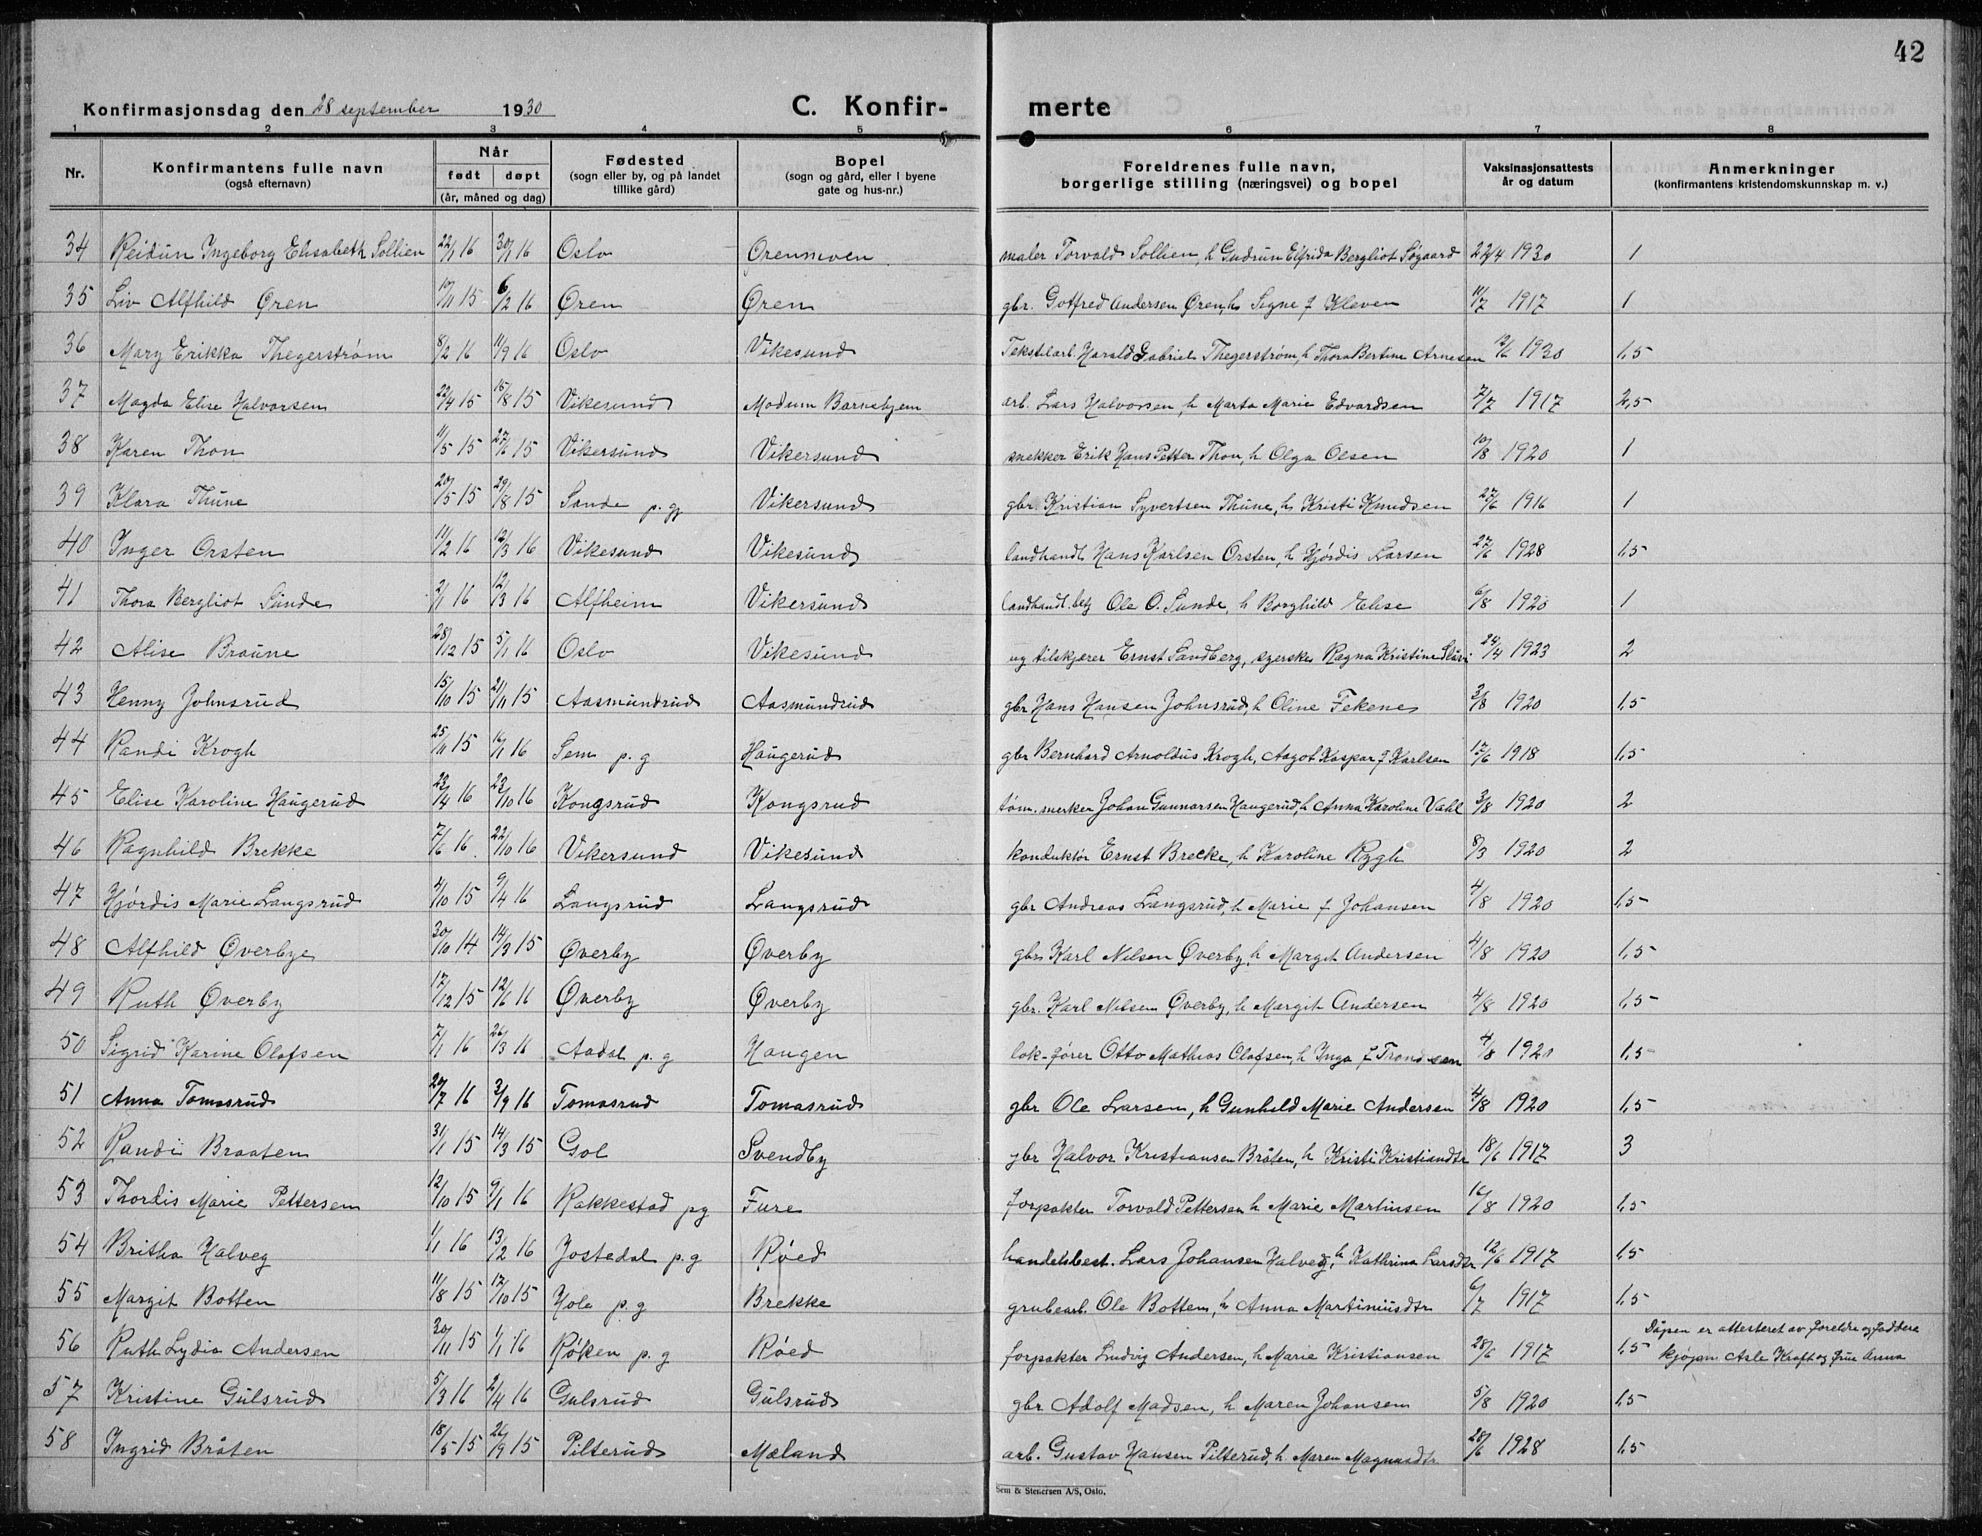 42
Konfirmasjonsdag den 28 september 1930 C. Konfir- merte
1 2 3 4 5 6 7 8
Nr. Konfirmantens fulle navn (også efternavn) Når født døpt (år, måned og dag) Fødested (sogn eller by, og på landet tillike gård) Bopel (sogn og gård, eller i byene gate og hus-nr.) Foreldrenes fulle navn, borgerlige stilling (næringsvei) og bopel Vaksinasjonsattests år og datum Anmerkninger (konfirmantens kristendomskunnskap m. v.)
34 Reidun Ingeborg Elisabeth Sollien 22/1 16 30/7 16 Oslo Orenmoen maler Torvald Sollien, h Gudrun Elfrida Bergliot Søgaard 22/4 1930 1
35 Liv Alfhild Øren 10/11 15 6/2 16 Øren Øren gbr. Gotfred Andersen Øren, h Signe f Kleven 11/7 1917 1
36 Mary Erikka Thegerstrøm 8/2 16 11/9 16 Oslo Vikesund Tekstilarb. Harald Gabriel Thegerstrøm, h Thora Bertine Arnesen 12/6 1930 1,5
37 Magda Elise Halvorsen 22/4 15 15/8 15 Vikesund Modum Barnehjem arb. Lars Halvorsen, h Marta Marie Edvardsen 7/7 1917 2,5
38 Karen Thon 11/5 15 27/6 15 Vikersund Vikersund snekker Erik Hans Petter Thon, h Olga Olsen 10/8 1920 1
39 Klara Thune 20/5 15 29/8 15 Sande p. gj Vikersund gbr Kristian Syvertsen Thune, h Kristi Knudsen 27/6 1916 1
40 Inger Orsten 11/2 16 12/3 16 Vikesund Vikesund landhandl. Hans Karlsen Orsten, h Hjørdis Larsen 27/6 1928 1,5
41 Thora Bergliot Sunde 2/1 16 12/3 16 Alfheim Vikersund landhandl. betj Ole O. Sunde, h Borghild Elise 6/8 1920 1
42 Alise Braune 28/12 15 5/1 16 Oslo Vikesund ug tilskjærer Ernst Sandberg, syerske Ragna Kristine 24/4 1923 2
43 Henny Johnsrud 15/10 15 21/11 15 Aasmundrud Aasmundrud gbr Hans Hansen Johnsrud, h Oline Fekene 3/8 1920 1,5
44 Randi Krogh 25/11 15 16/1 16 Sem p. g Haugerud gbr Bernhard Arnoldus Krogh, Aagot Kaspara f Karlsen 12/6 1918 1,5
45 Elise Karoline Haugerud 23/4 16 23/10 16 Kongsrud Kongsrud tøm.merker Johan Gunnarsen Haugerud, h Anna Karoline Vahl 3/8 1920 2
46 Ragnhild Brekke 7/6 16 22/10 16 Vikersund Vikesund konduktør Ernst Brecke, h Karoline Rygh 8/3 1920 2
47 Hjørdis Marie Langsrud 4/10 15 9/4 16 Langsrud Langsrud gbr Andreas Langsrud, h Marie f Johansen 4/8 1920 1,5
48 Alfhild Øverbye 30/10 14 14/3 15 Øverby Øverby gbr Karl Nilsen Øverby, h Margit Andersen 4/8 1920 1,5
49 Ruth Øverby 17/12 15 12/6 16 Øverby Øverby gbr. Karl Nilsen Øverby, h Margit Andersen 4/8 1920 1,5
50 Sigrid Karine Olafsen 7/1 16 26/3 16 Aadal p. g Haugen lok-fører Otto Mathias Olafsen, h Inga f Trondsen 4/8 1920 1,5
51 Anna Tomasrud 20/7 16 3/9 16 Tomasrud Tomasrud gbr Ole Larsen, h Gunhild Marie Andersen 4/8 1920 1,5
52 Randi Braaten 31/1 15 14/3 15 Gol Svendby gbr Halvor Kristiansen Bråten, h Kristi Kristiandtr 18/6 1917 3
53 Thordis Marie Pettersen 12/10 15 9/1 16 Rakkestad pg Fure forpakter Torvald Pettersen h Marie Martinsen 16/8 1920 1,5
54 Britha Halveg 1/1 16 13/2 16 Jostedal p. g Røed handelsbest. Lars Johansen Halveg, h Kathrina Larsdtr 12/6 1917 1,5
55 Margit Botten 11/8 15 17/10 15 Hole p. g Brekke grubearb. Ole Botten, h Anna Martiniusdtr 6/7 1917 1,5
56 Ruth Lydia Andersen 30/11 15 1/1 16 Røken p. g Røed forpakter Ludvig Andersen, h Marie Kristiansen 28/6 1917 1,5 Dåpen er attesteret av foreldre og faddere kjøpm. Asle Kraft og frue Anna
57 Kristine Gulsrud 5/3 16 2/4 16 Gulsrud Gulsrud gbr Adolf Madsen, h Maren Johansen 5/8 1920 1,5
58 Ingrid Bråten 18/5 15 26/9 15 Pilterud Mæland arb. Gustav Hansen Pilterud, h. Maren Magnusdtr 20/6 1928 1,5
Sem & Stenersen A/S, Oslo.